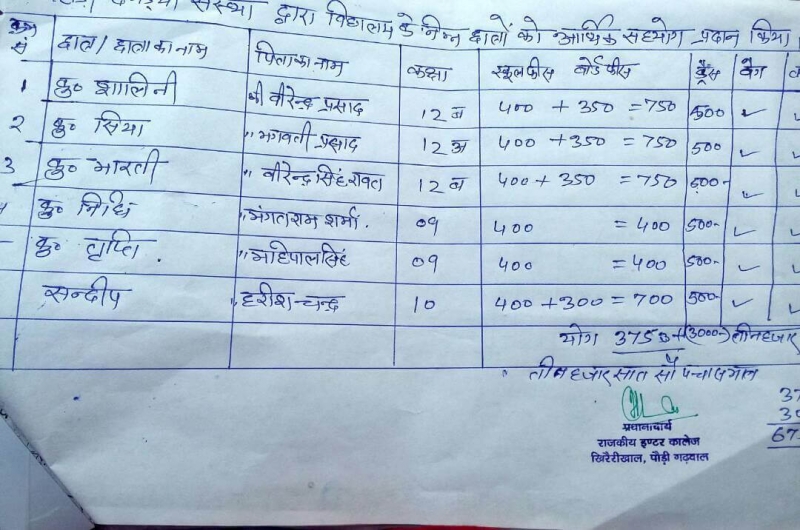 संस्था द्वारा विद्यालय के निम्न छात्रों को आर्थिक सहयोग प्रदान किया
क्रम सं छात्र/छात्रा का नाम पिता का नाम कक्षा स्कूल फीस बोर्ड फीस ड्रैस बैग
1 कु० शालिनी श्री वीरेन्द्र प्रसाद 12 ब 400 + 350 = 750 500 ✓
2 कु० सिया " भगवती प्रसाद 12 अ 400 + 350 = 750 500 ✓
3 कु० भारती " वीरेन्द्र सिंह रावत 12 ब 400 + 350 = 750 500- ✓
कु० निधि " मंगतराम शर्मा. 09 400 = 400 500- ✓
कु० तृप्ति. " महिपाल सिंह 09 400 = 400 500- ✓
सन्दीप " हरीश चन्द्र 10 400 + 300 = 700 500- ✓
योग 3750 + (3000-) तीन हजार
तीन हजार सात सौ पचास मात्र
37
30
67
प्रधानाचार्य
राजकीय इण्टर कालेज
खिरैरीखाल, पौड़ी गढ़वाल